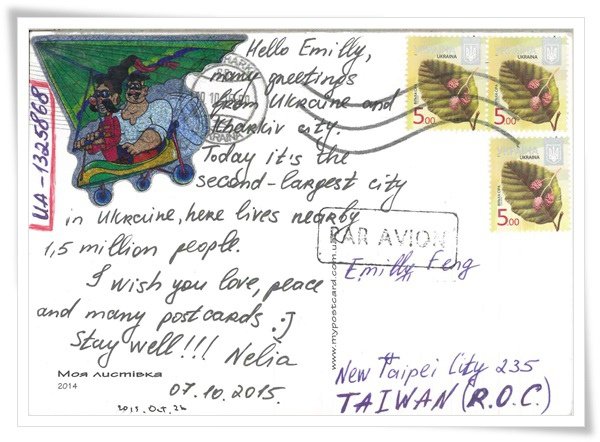 Hello Emilly,
many greetings
from Ukraine and
Kharkiv city.
Today it's the
second-largest city
in Ukraine, here lives nearby
1,5 million people.
I wish you love, peace
and many postcards :)
Stay well!!! Nelia
07.10.2015.
2015. Oct. 26
Моя листівка
2014
UA-13258868
UKRAINE
5.00
UKRAINE
5.00
UKRAINE
5.00
PAR AVION
www.mypostcard.com.ua
Emilly Feng
New Taipei City 235
TAIWAN (R.O.C.)